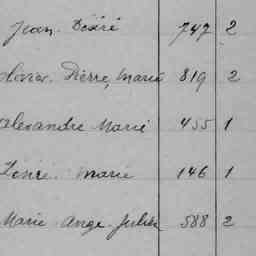 Jean Désiré 747 2
Olivier Pierre, Marie 819 2
alexandre Marie 455 1
Marie 146 1
Marie Ange Julien 588 2